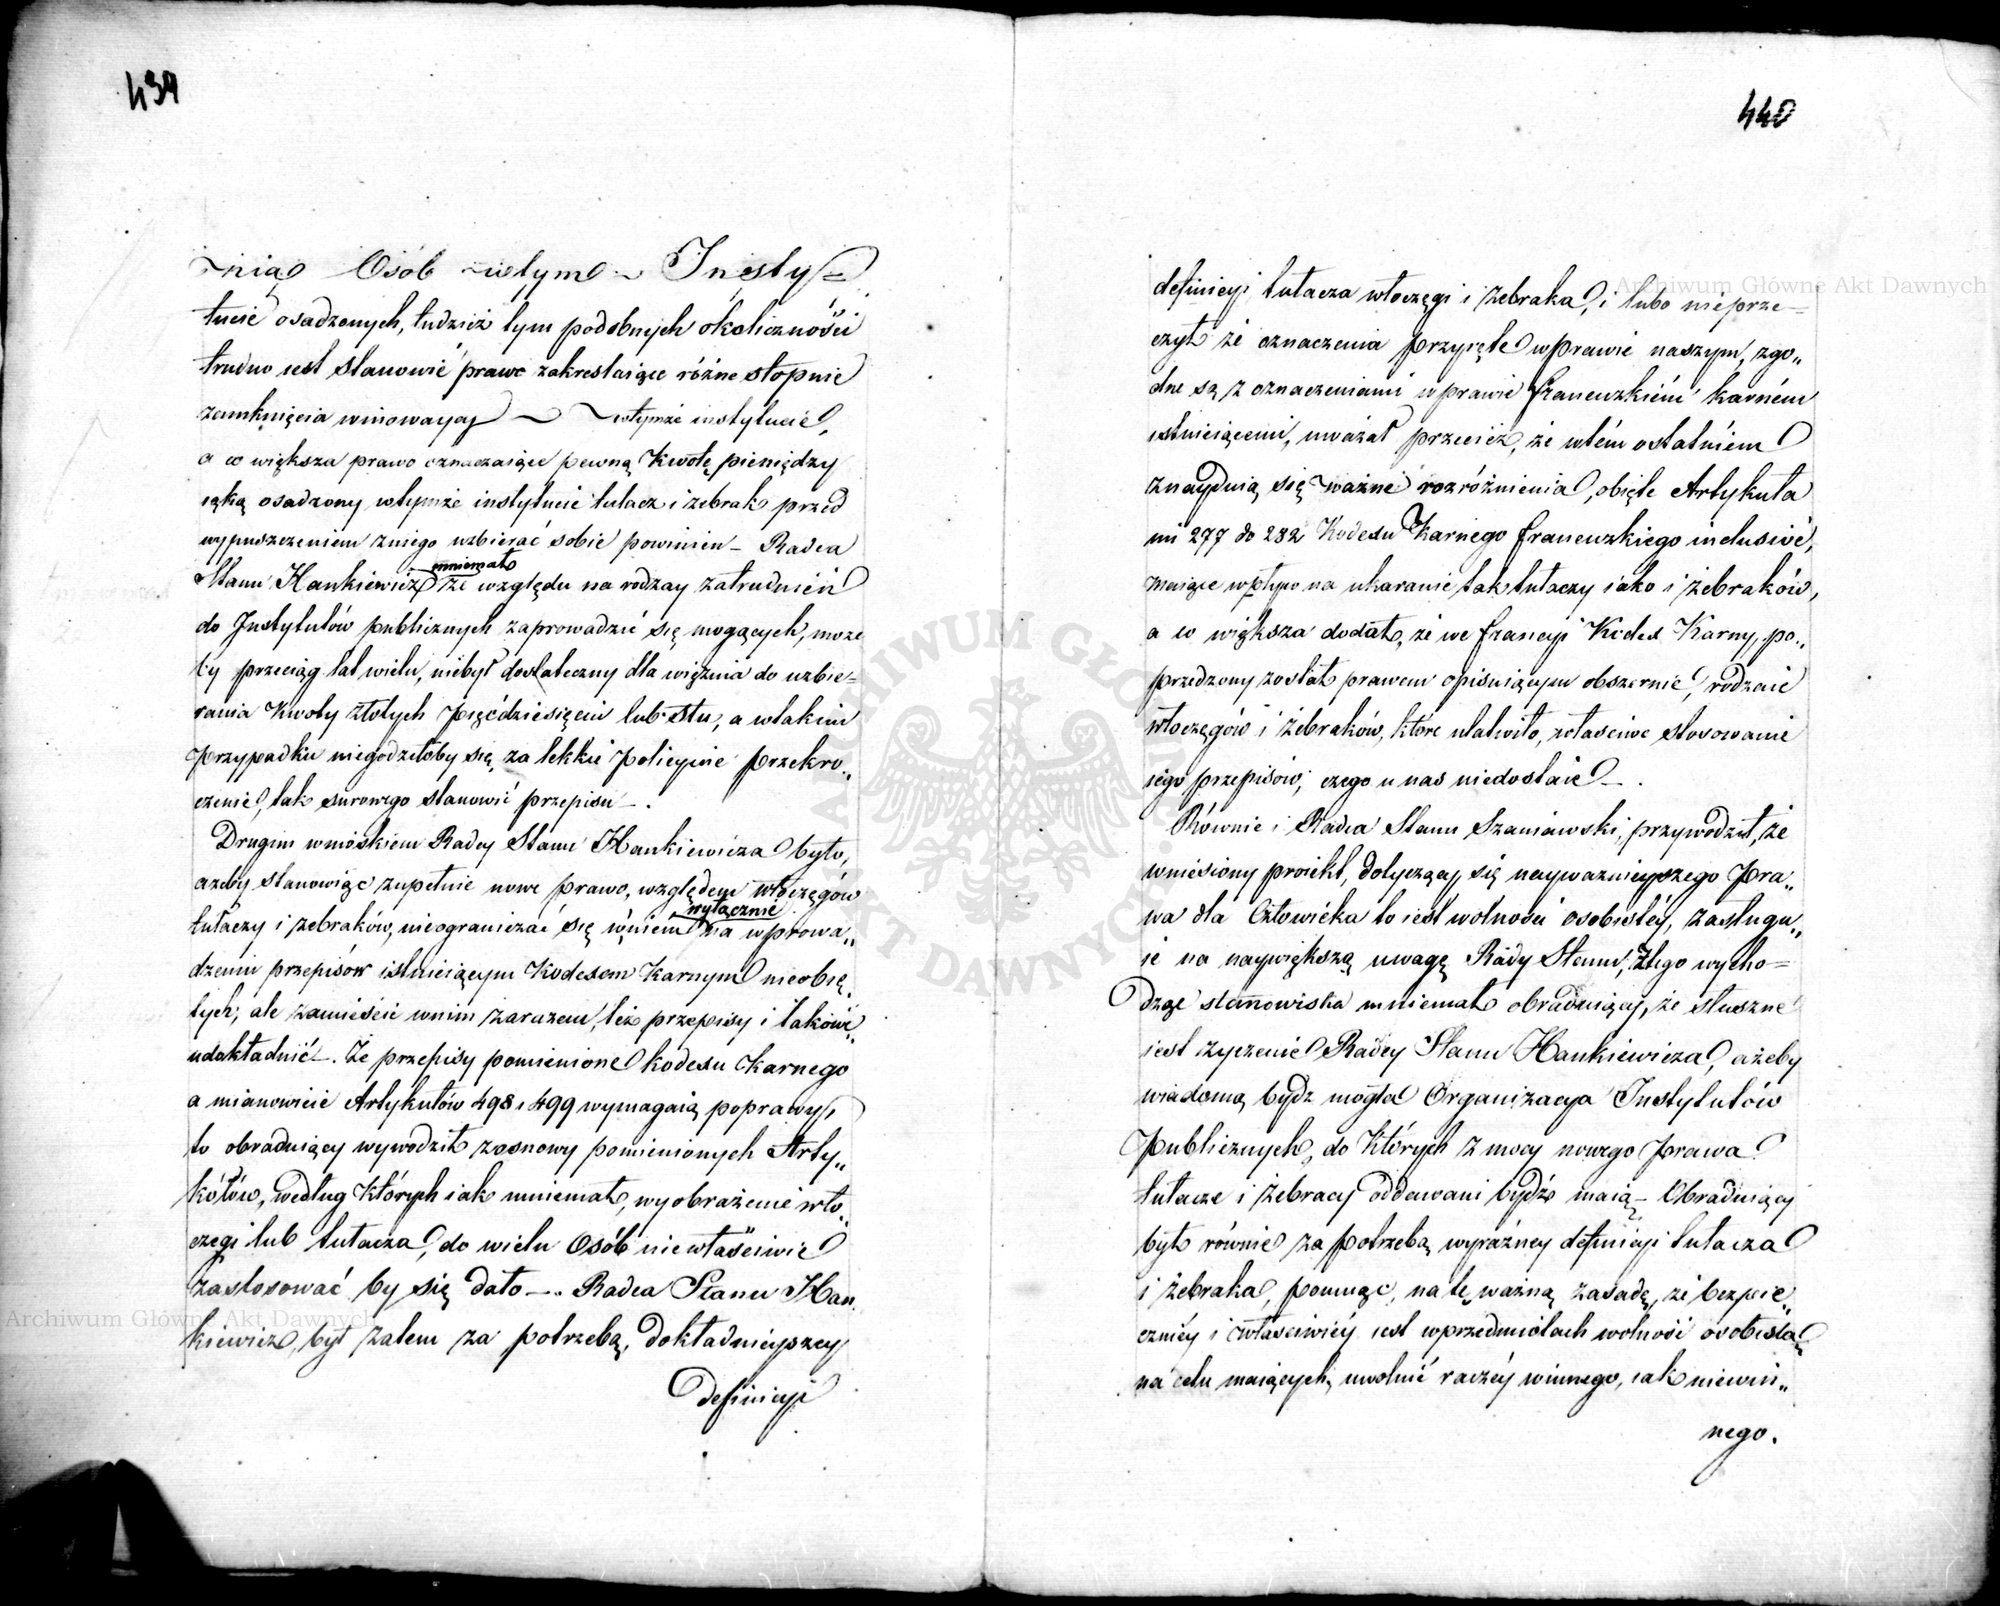 439
nią Osób w tym Insty=
tucie osadzonych, tudzież tym podobnych okoliczności
trudno iest stanowić prawo zakreslaiące różne stopnie
zamknięcia winowaycy w tymże instytucie,
a co większa prawo oznaczaiące pewną Kwotę pieniędzy
iąką osadzony w tymże instytucie tułacz i żebrak przed
wypuszczeniem zniego uzbierać sobie powinien – Radca
mniemał
Stanu Hankiewicz że względu na rodzay zatrudnień
do Instytutów publicznych zaprowadzić się mogących, może
by przeciąg lat wielu, niebył dostateczny dla więźnia do uzbie=
rania Kwoty złotych pięćdziesięciu lub stu, a wtakim
przypadku niegodziłoby się, za lekkie policyine przekro„
czenie, tak surowego stanowić przepisu –.
Drugim wnioskiem Radcy Stanu Hankiewicza było,
ażeby stanowiąc zupełnie nowe prawo, względem włóczęgów
wyłącznie
tułaczy i żebraków, nieograniczać się wniem na wprowa„
dzeniu przepisów istnieiącym Kodexem Karnym nieobię„
tych; ale zamieścić wnim zarazem, też przepisy i takowe„
udokładnić –. Że przepisy pomienione kodexu Karnego
a mianowicie Artykułów 498 i 499 wymagaią poprawy,
to obraduiący wywodził zosnowy pomienionych Arty„
kółów, według Których iak mniemał, wyobrażenie wło„
częgi lub tułacza, do wielu Osób niewłaściwie
zastosować by się dało –. Radca Stanu Han„
kiewicz, był zatem za potrzebą, dokładnieyszey
Definicyi
440
definicyi tułacza włoczęgi i żebraka, i lubo nieprze=
czył że oznaczenia przyięte wprawie naszym, zgo„
dne są z oznaczeniami wprawie francuzkiém karném
istnieiącemi, uważał przecież, że wtém ostatniem
znayduią się ważne rozróżnienia, obięte Artykuła
mi 277 do 282 Kodexu Karnego francuzkiego inclusive,
maiące wpływ na ukaranie tak tułaczy iako i żebraków,
a co większa dodał, że we francyi Kodex Karny, po„
przedzony został prawem opisuiącym obszernie, rodzaie
włoczęgów i żebraków, które ułatwiło, właściwe stosowanie
iego przepisów, czego u nas niedostaie –.
Równie i Radca Stanu Szaniawski, przywodził, że
wniesiony proiekt, dotyczący się nayważnieyszego Pra„
wa dla Człowieka to iest wolności osobistéy, zasługu„
ie na naywiększą uwagę Rady Stanu, Ztego wycho=
dząc stanowiska mniemał obraduiący, że słuszne
iest życzenie Radcy Stanu Hankiewicza, ażeby
wiadomą bydz mogła Organizacya Instytutów
Publicznych, do Których z mocy nowego prawa
tułacze i żebracy oddawani bydź maią – Obraduiący
był równie za potrzebą wyraźney definicyi tułacza
i żebraka, pomnąc, na tę ważną zasadę, że bezpie„
czniéy i właściwiéy iest wprzedmiotach wolność osobistą
na celu maiących, uwolnić raczéy winnego, iak niewin„
nego.
Archiwum Główne Akt Dawnych
Archiwum Główne Akt Dawnych
ARCHIWUM GŁÓWNE AKT DAWNYCH